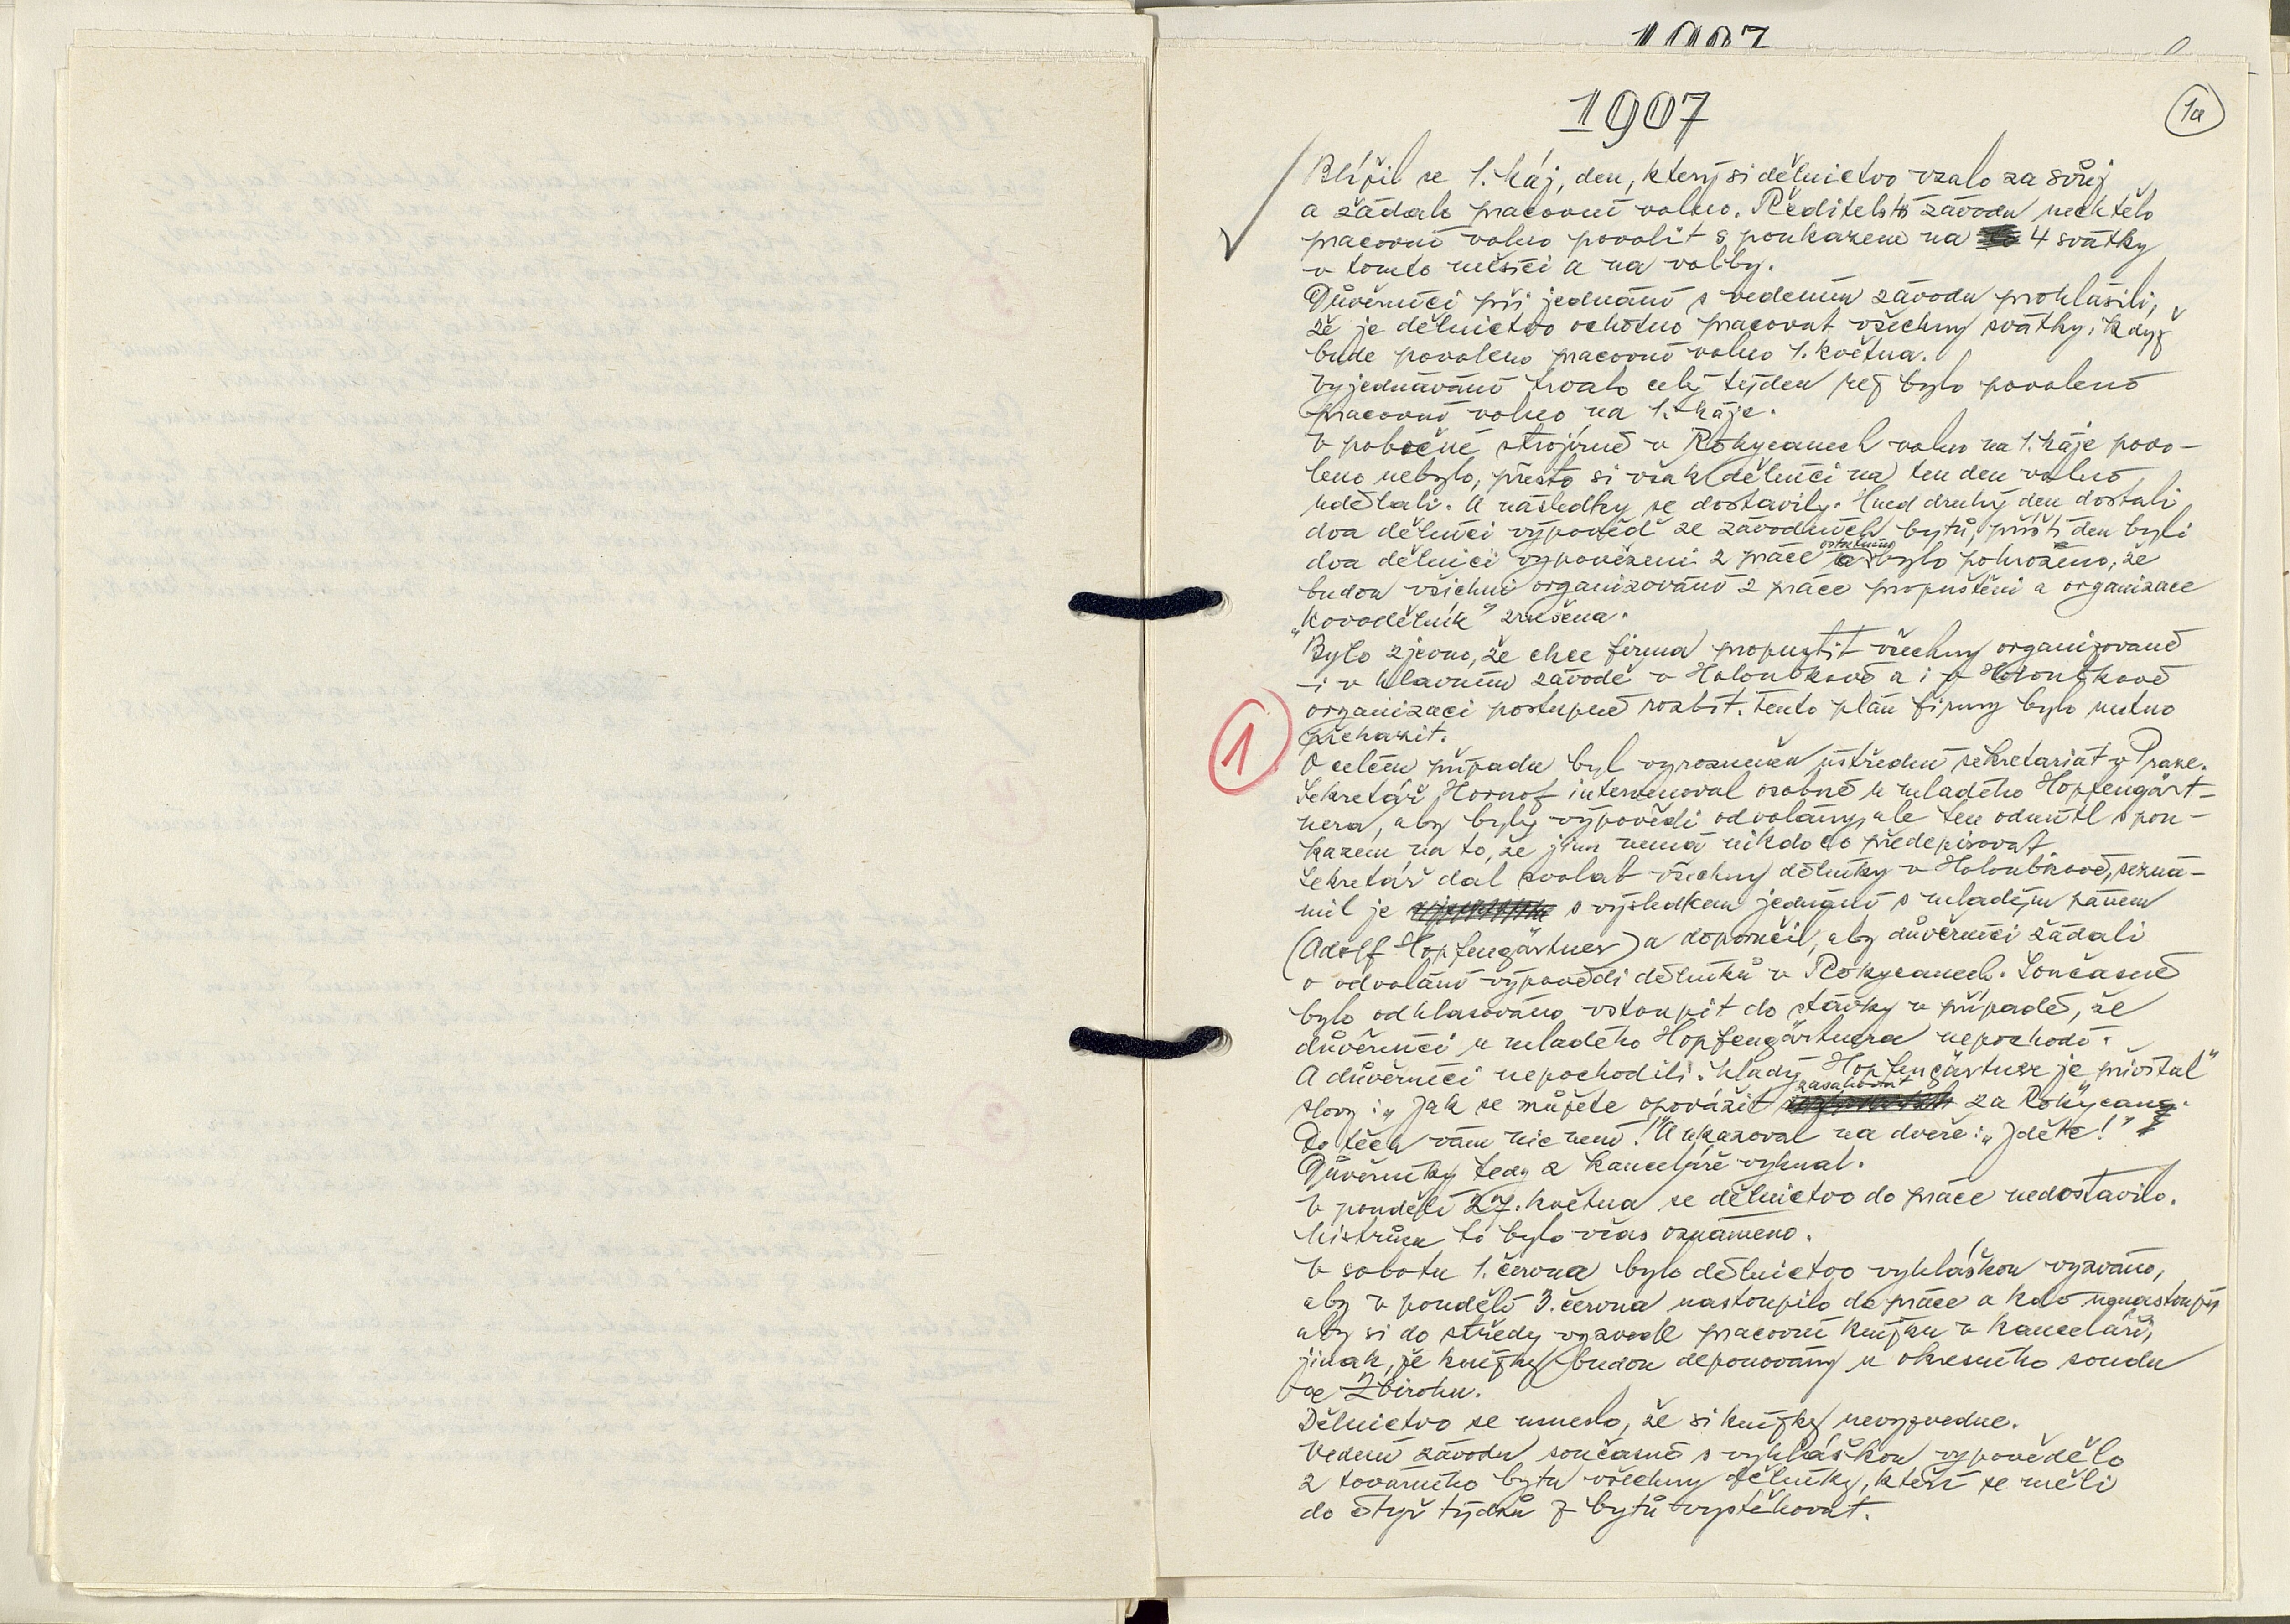 1907
1907
1a
Blížil se 1. Máj, den, který si dělnictvo vzalo za svůj
a žádalo pracovní volno. Ředitelství závodu nechtělo
pracovní volno povolit s poukazem na 4 svátky
v tomto měsíci a na volby.
Důvěrníci při jednání s vedením závodu prohlásili,
že je dělnictvo ochotno pracovat všechny svátky, když
bude povoleno pracovní volno 1. května.
Vyjednávání trvalo celý týden než bylo povoleno
pracovní volno na 1. Máje.
V pobočné strojírně v Rokycanech volno na 1. Máje povo-
leno nebylo, přesto si však dělníci na ten den volno
udělali. A následky se dostavily. Hned druhý den dostali
dva dělníci výpověď ze závodních bytů, příští den byli
dva dělníci vypovězeni z práce a ostatním bylo pohroženo, že
budou všichni organizováni z práce propuštěni a organizace
„Kovodělník" zrušena.
Bylo zjevno, že chce firma propustit všechny organizované
i v hlavním závodě v Holoubkově a i v Holoubkově
organizaci postupně rozbít. Tento plán firmy bylo nutno
překazit.
1
O celém případu byl vyrozuměn ústřední sekretariát v Praze.
Sekretář Hornof intervenoval osobně u mladého Hopfengärt-
nera, aby byly výpovědi odvolány, ale ten odmítl s pou-
kazem na to, že jim nemá nikdo co předepisovat.
Sekretář dal svolat všechny dělníky v Holoubkově, sezná-
mil je s výsledkem jednání s mladým pánem
(Adolf Hopfengärtner) a doporučil, aby důvěrníci žádali
o odvolání výpovědi dělníků v Rokycanech. Současně
bylo odhlasováno vstoupit do stávky v případě, že
důvěrníci u mladého Hopfengärtnera nepochodí.
A důvěrníci nepochodili. Mladý Hopfengärtner je „přivítal"
slovy: „Jak se můžete opovážit zasahovat za Rokycany.
Do těch vám nic není!" A ukazoval na dveře: „Jděte!"
Důvěrníky tedy z kanceláře vyhnal.
V pondělí 27. května se dělnictvo do práce nedostavilo.
Mistrům to bylo včas oznámeno.
V sobotu 1. června bylo dělnictvo vyhláškou vyzváno,
aby v pondělí 3. června nastoupilo do práce a kdo nenastoupí,
aby si do středy vyzvedl pracovní knížku v kanceláři,
jinak, že knížky budou deponovány u okresního soudu
ve Zbirohu.
Dělnictvo se usneslo, že si knížky nevyzvedne.
Vedení závodu současně s vyhláškou vypovědělo
z továrního bytu všechny dělníky, kteří se měli
do čtyř týdnů z bytů vystěhovat.